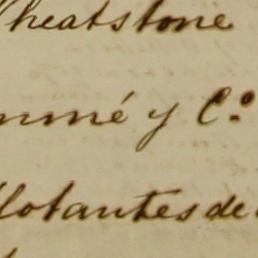 Wheatstone
mmé y C.º
flotantes de